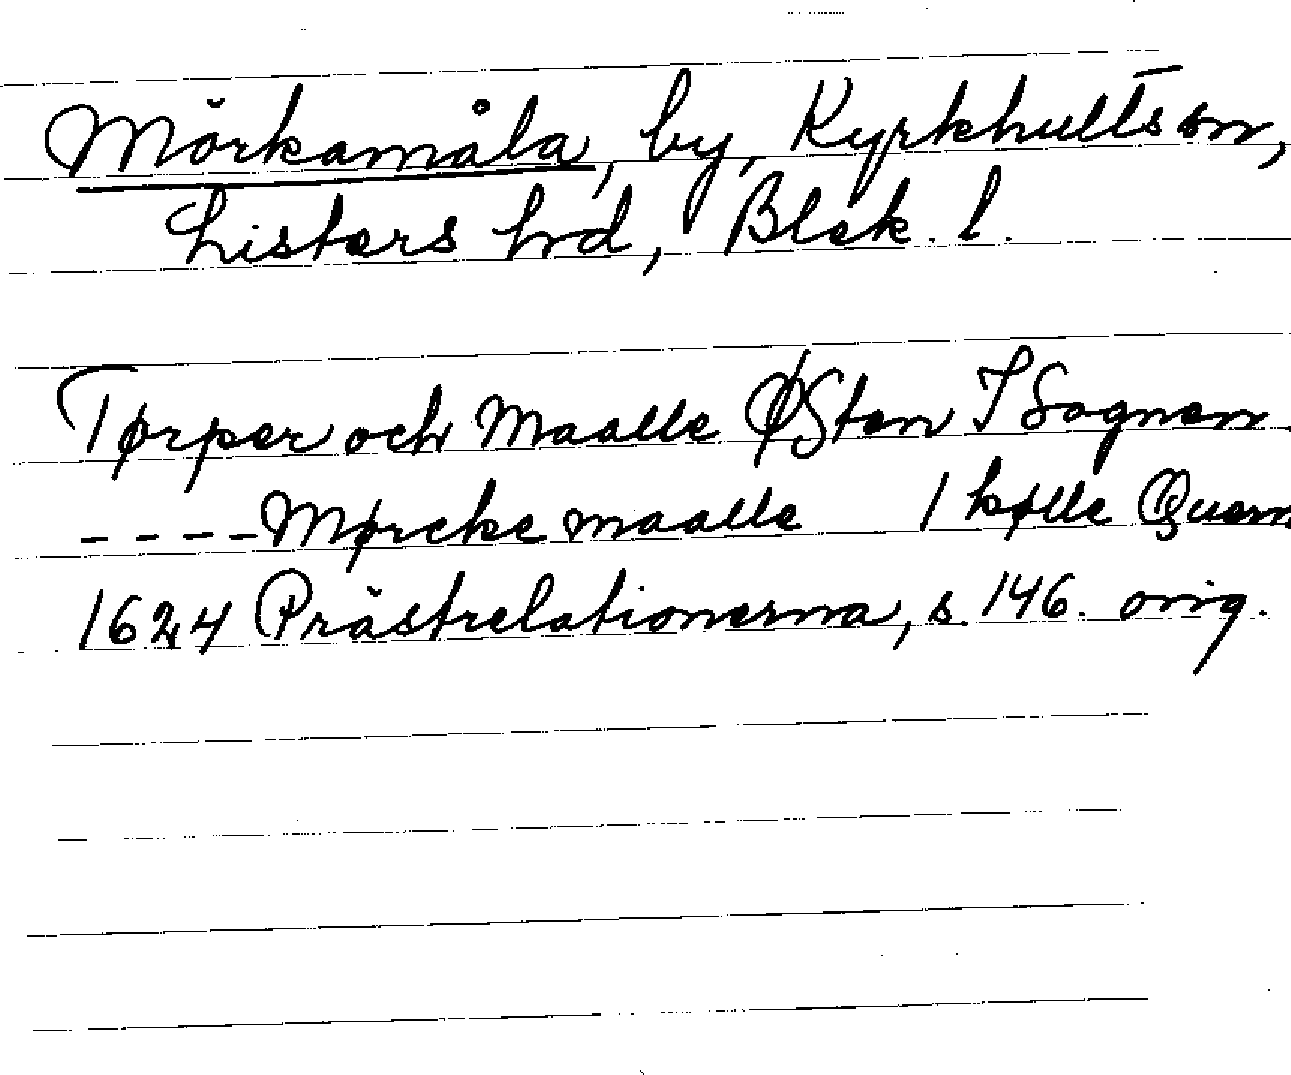 Mörkamåla, by, Kyrkhults sn,
Listers hrd, Blek. l.
Tørper och Maalle ØSten I Sognen.
- - - - Mørcke maalle 1 kølle Quern
1624 Prästrelationerna, s. 146. orig.